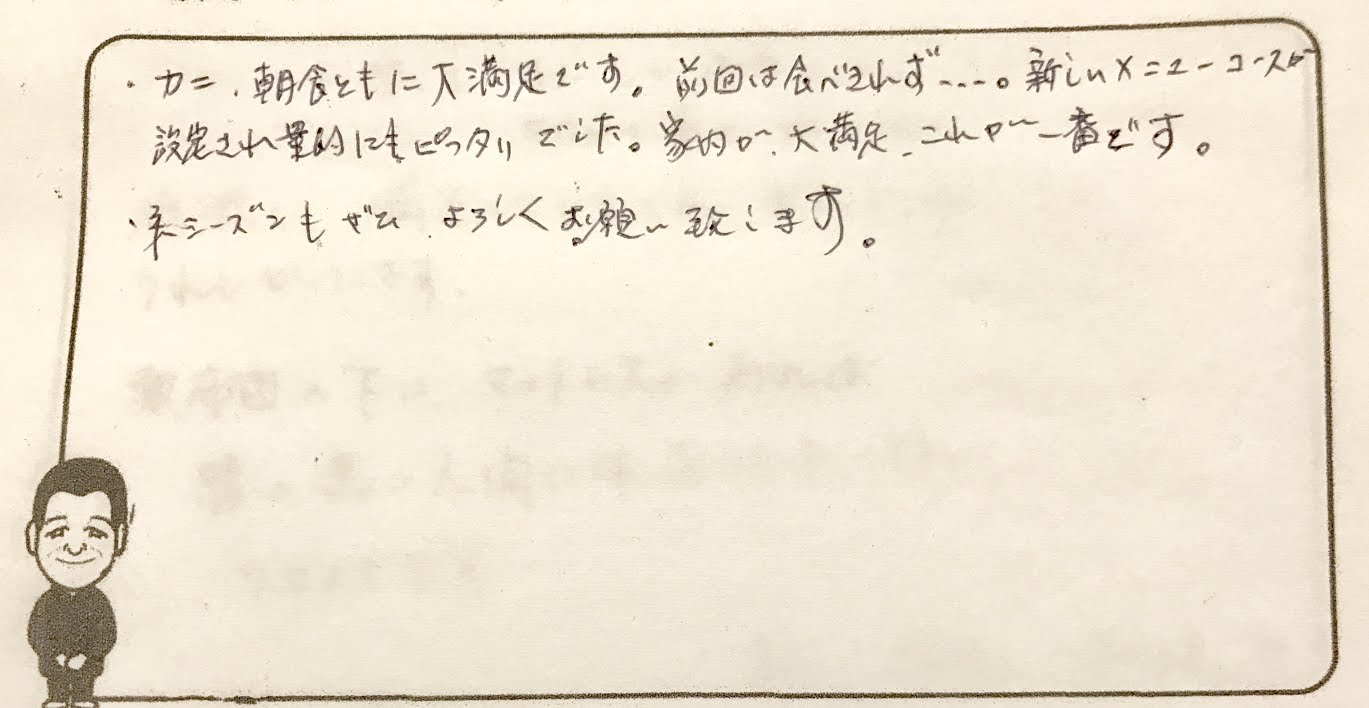 ・カニ、朝食ともに大満足です。前回は食べきれず‥‥。新しいメニューコースが
設定され量的にもピッタリでした。家内が、大満足、これが一番です。
・来シーズンもぜひ、よろしくお願い致します。